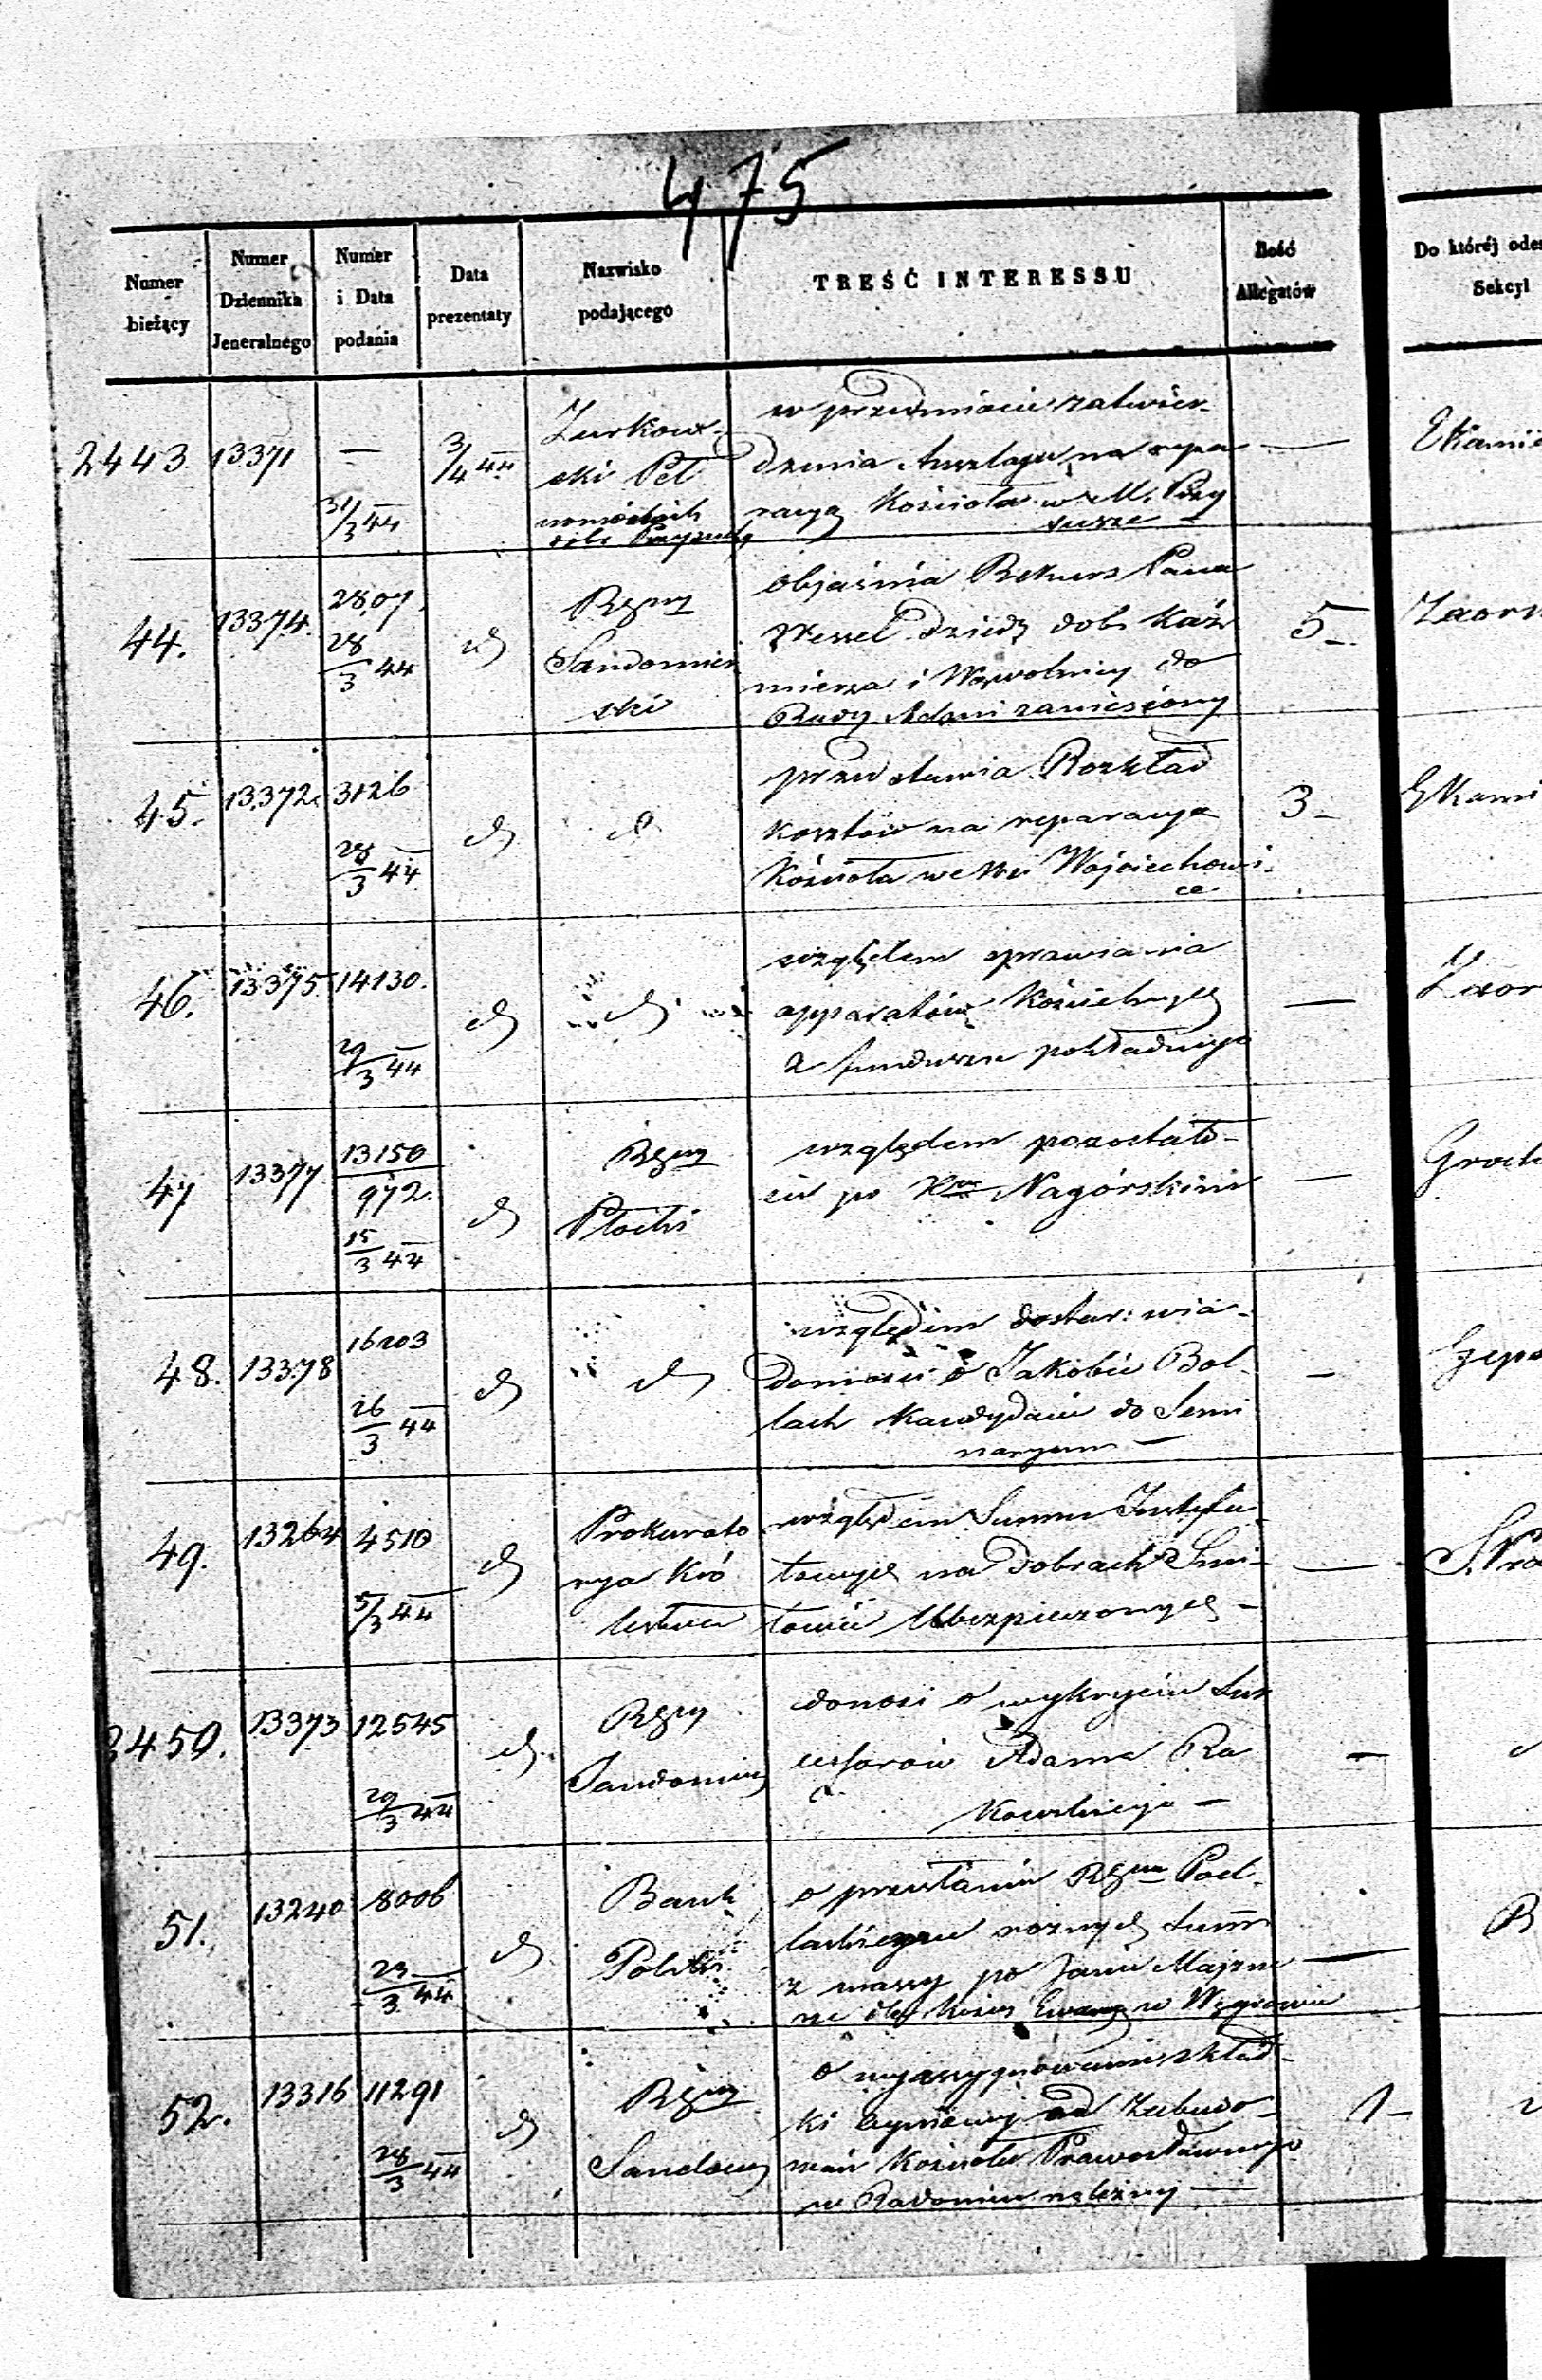 475
Numer bieżący
Numer Dziennika Jeneralnego
Numer i Data podania
Data prezentaty
Nazwisko podającego
TREŚĆ INTERESSU
Ilość Allegatów
Do któréj odes
Sekcyi
2443. 13371 — 31/3 44 3/4 44
Zurkow-
ski Peł
w przedmiocie zatwier-
dzenia Anszlagu na repa
racyą Kościoła w M. Przy
susze —
—
44. 13374. 2807. 28/3 44
Rząd
Sandomier
ski
objaśnia Rekurs Pana
Wessel dziedz dobr Kazi
mierza i Wąwolnicy do
Rady Admi zaniesiony
5 —
45. 13372. 3126 28/3 44
przedstawia Rozkład
kosztów na reparacye
Kościoła we Wsi Wojciechowi-
ce.
3 —
46. 13375 14130. 29/3 44
względem sprawiania
apparatów Kościelnych
z funduszu pokładnego
—
47 13377 13150/972. 15/3 44
Rząd
Płocki
względem pozostało-
ści po Nagórskim
—
48. 13378 16203 26/3 44
względem dostar: wia-
domości o Jakobie Bol-
lach Kandydacie do Semi
naryum —
—
49. 13264 4510 5/3 44
Prokurato
rya Kró
lestwa
względem Summ Instytu
towych na dobrach Smi-
łowie Ubezpieczonych —
—
2450. 13373 12545 29/3 44
Rząd
Sandomier
donosi o wykryciu Suk
cessorów Adama Ra
kowskiego —
—
51. 13240 8006 23/3 44
Bank
Polski
o przesłaniu Rządowi Pod-
laskiemu roznych Summ
z massy po Janie Majzne
rze dla Kościoła Ewang w Węgrowie
—
52. 13316 11291 28/3 44
Rząd
Sandom
o wyassygnowanie skład-
ki ogniowej od Zabudo-
wań Kościoła Prawosławnego
w Radomiu należnej —
1 —